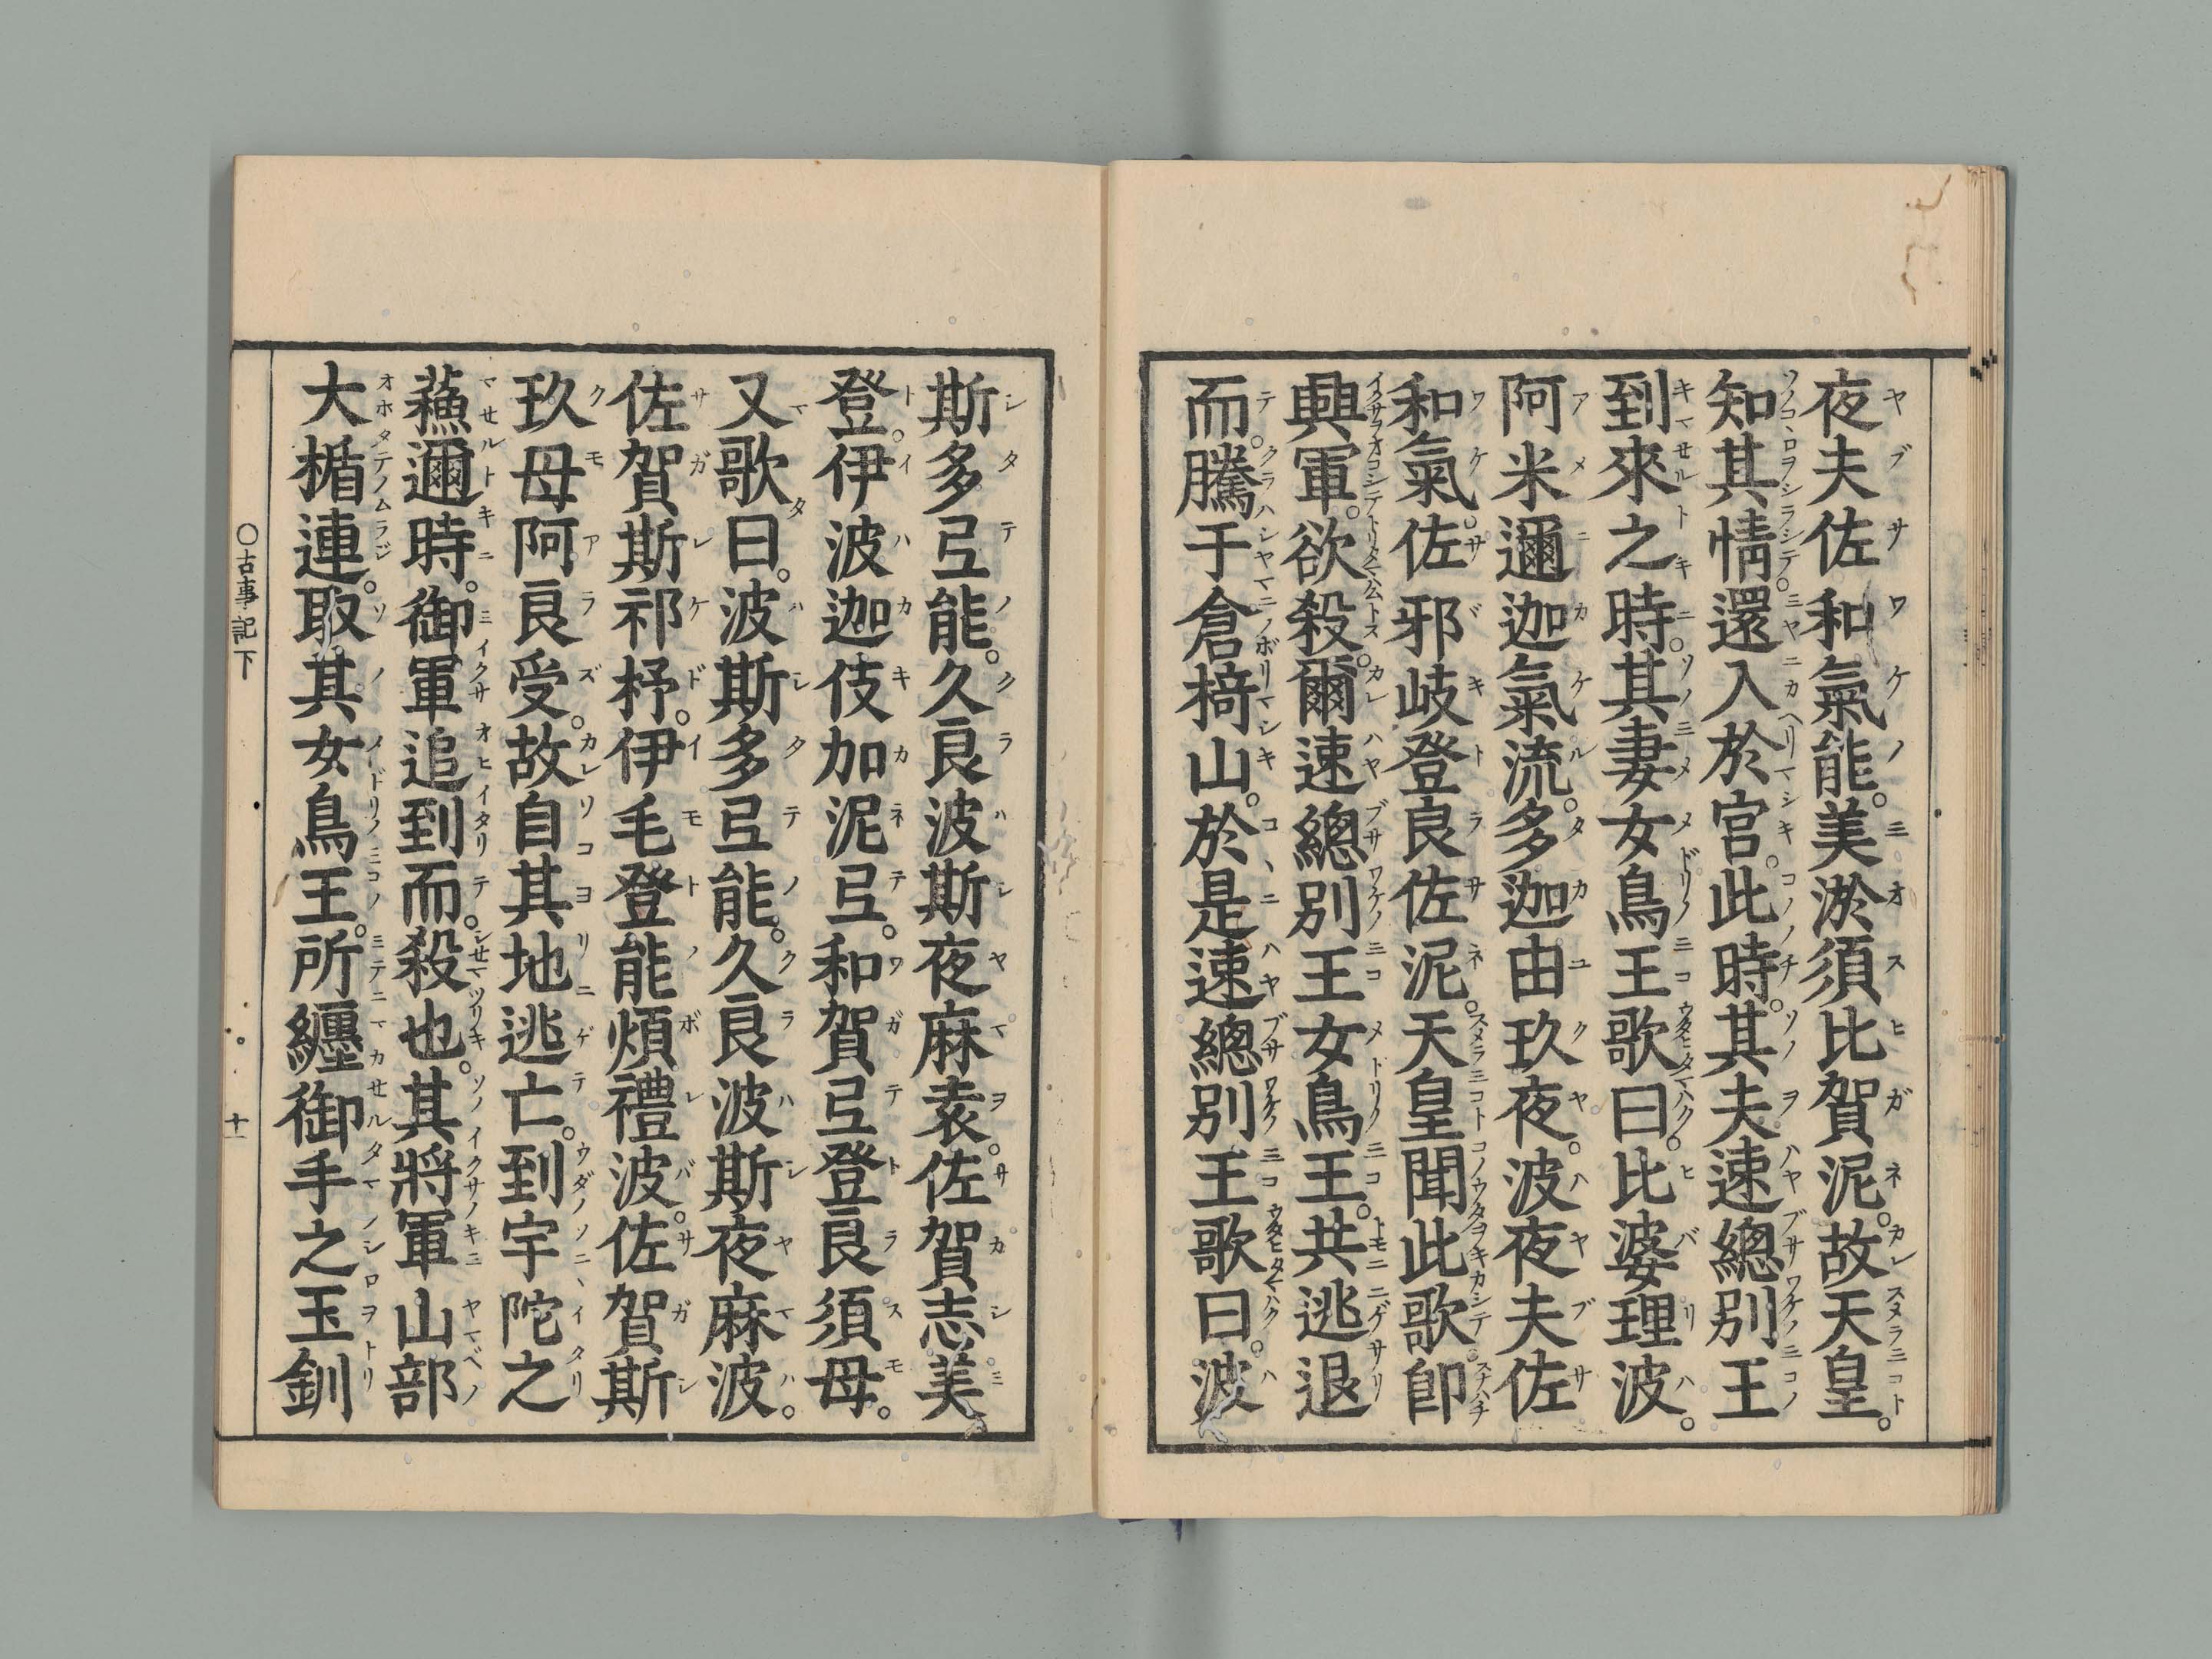 夜夫佐和氣能。美淤須比賀泥。故天皇。
知其情。還入於宮。此時。其夫速總別王
到來之時。其妻女鳥王歌曰。比婆理波。
阿米邇迦氣流。多迦由玖夜。波夜夫佐
和氣。佐邪岐登良佐泥。天皇聞此歌。卽
興軍。欲殺。爾速總別王女鳥王。共逃退
而。騰于倉椅山。於是速總別王歌曰。波
斯多弖能。久良波斯夜麻袁。佐賀志美
登。伊波迦伎加泥弖。和賀弖登良須母。
又歌曰。波斯多弖能。久良波斯夜麻波。
佐賀斯祁杼。伊毛登能煩禮波。佐賀斯
玖母阿良受。故自其地逃亡。到宇陀之
蘓邇時。御軍追到而。殺也。其將軍山部
大楯連。取其女鳥王。所纒御手之玉釧
○古事記下
十一